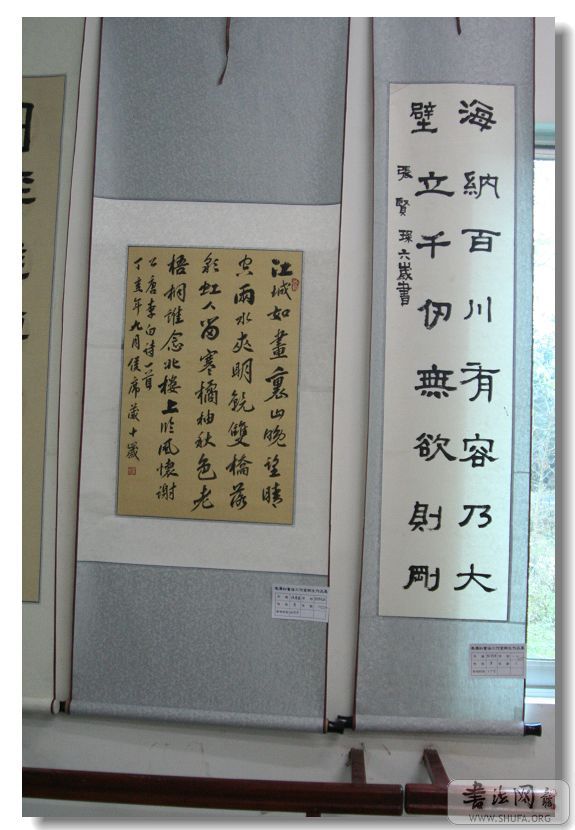 海納百川有容乃大
壁立千仞無欲則剛
張賢琛六歲書
江城如畫裏山晚望晴
空雨水夾明鏡雙橋落
彩虹人留寒橘柚秋色老
梧桐誰念北樓上临風懷謝
公唐李白诗一首
丁亥年九月侯席葳十歲
書法网
WWW.SHUFA.ORG